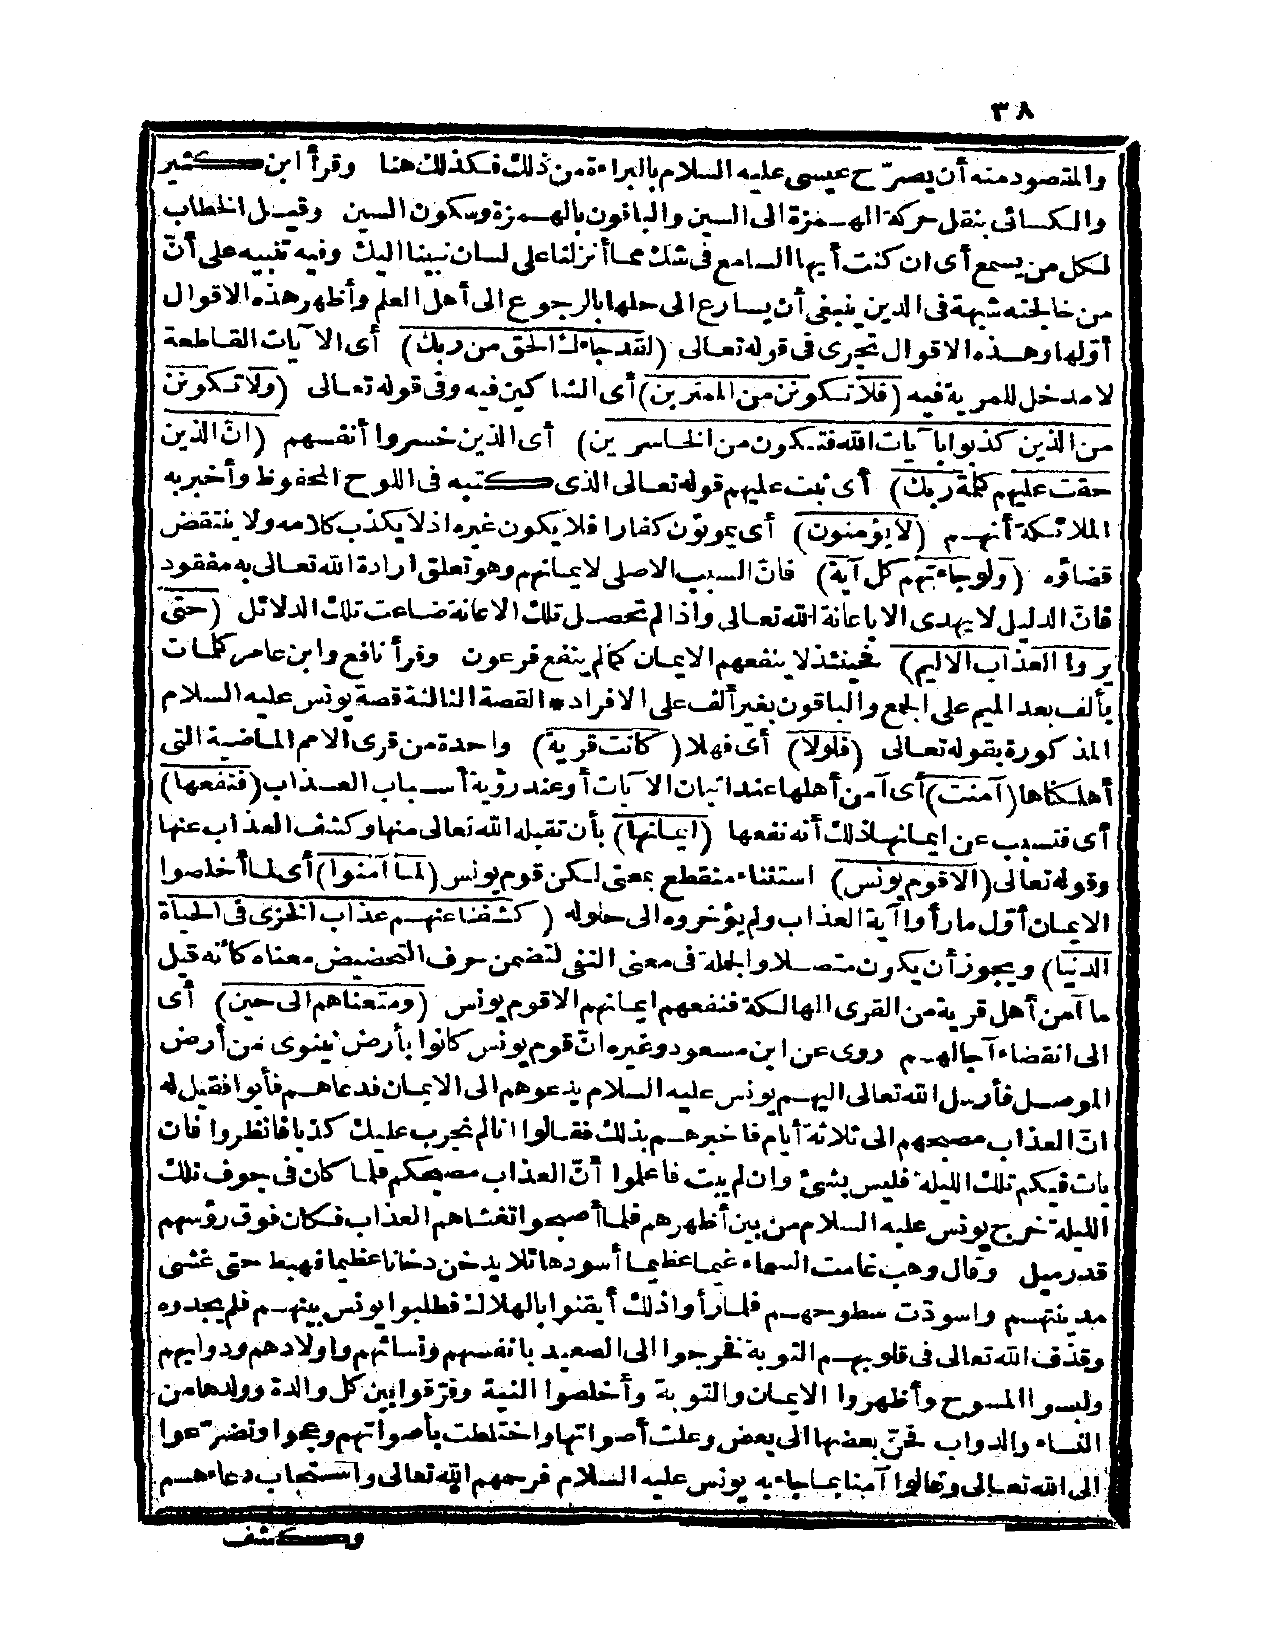 ٣٨
والمقصود منه أن يصرّح عيسى عليه السلام بالبراءة من ذلك فكذلك هنا وقرأ ابن كثير
والكسائى بنقل حركة الهمزة الى السين والباقون بالهمزة وسكون السين وقيل الخطاب
لكل من يسمع أى ان كنت أيها السامع فى شك مما أنزلنا على لسان نبينا اليك وفيه تنبيه على أنّ
من خالجته شبهة فى الدين ينبغى أن يسارع الى حلها بالرجوع الى أهل العلم وأظهر هذه الاقوال
أوّلها وهذه الاقوال تجرى فى قوله تعالى (لقد جاءك الحق من ربك) أى الآيات القاطعة
لا مدخل للمرية فيه (فلا تكونن من الممترين) أى الشاكين فيه وفى قوله تعالى (ولا تكونن
من الذين كذبوا بآيات الله فتكون من الخاسرين) أى الذين خسروا أنفسهم (انّ الذين
حقت عليهم كلمة ربك) أى ثبت عليهم قوله تعالى الذى كتبه فى اللوح المحفوظ وأخبر به
الملائكة أنهم (لا يؤمنون) أى يموتون كفارا فلا يكون غيره اذ لا يكذب كلامه ولا ينتقض
قضاؤه (ولو جاءتهم كل آية) فانّ السبب الاصلى لايمانهم وهو تعلق ارادة الله تعالى به مفقود
فانّ الدليل لا يهدى الا باعانة الله تعالى واذا لم تحصل تلك الاعانة ضاعت تلك الدلائل (حتى
يروا العذاب الاليم) فحينئذ لا ينفعهم الايمان كما لم ينفع فرعون وقرأ نافع وابن عامر كلمات
بألف بعد الميم على الجمع والباقون بغير ألف على الافراد * القصة الثالثة قصة يونس عليه السلام
المذكورة بقوله تعالى (فلولا) أى فهلا (كانت قرية) واحدة من قرى الامم الماضية التى
أهلكناها (آمنت) أى آمن أهلها عند اتيان الآيات أو عند رؤية أسباب العذاب (فنفعها)
أى فتسبب عن ايمانها ذلك أنه نفعها (ايمانها) بأن تقبله الله تعالى منها وكشف العذاب عنها
وقوله تعالى (الا قوم يونس) استثناء منقطع بمعنى لكن قوم يونس (لما آمنوا) أى لما أخلصوا
الايمان أوّل ما رأوا آية العذاب ولم يؤخروه الى حلوله (كشفنا عنهم عذاب الخزى فى الحياة
الدنيا) ويجوز أن يكون متصلا والجملة فى معنى النفى لتضمن حرف التحضيض معناه كأنه قيل
ما آمن أهل قرية من القرى الهالكة فنفعهم ايمانهم الا قوم يونس (ومتعناهم الى حين) أى
الى انقضاء آجالهم روى عن ابن مسعود وغيره انّ قوم يونس كانوا بأرض نينوى من أرض
الموصل فأرسل الله تعالى اليهم يونس عليه السلام يدعوهم الى الايمان فدعاهم فأبوا فقيل له
انّ العذاب مصبحهم الى ثلاثة أيام فأخبرهم بذلك فقالوا انا لم نجرب عليك كذبا فانظروا فان
بات فيكم تلك الليلة فليس بشئ وان لم يبت فاعلموا أنّ العذاب مصبحكم فلما كان فى جوف تلك
الليلة خرج يونس عليه السلام من بين أظهرهم فلما أصبحوا تغشاهم العذاب فكان فوق رؤسهم
قدر ميل وقال وهب غامت السماء غيما عظيما أسود هائلا يدخن دخانا عظيما فهبط حتى غشى
مدينتهم واسودّت سطوحهم فلما رأوا ذلك أيقنوا بالهلاك فطلبوا يونس بينهم فلم يجدوه
وقذف الله تعالى فى قلوبهم التوبة فخرجوا الى الصعيد بانفسهم ونسائهم واولادهم ودوابهم
ولبسوا المسوح وأظهروا الايمان والتوبة وأخلصوا النية وفرّقوا بين كل والدة وولدها من
النساء والدواب فحنّ بعضها الى بعض وعلت أصواتها واختلطت بأصواتهم وعجوا وتضرّعوا
الى الله تعالى وقالوا آمنا بما جاء به يونس عليه السلام فرحمهم الله تعالى واستجاب دعاءهم
وكشف